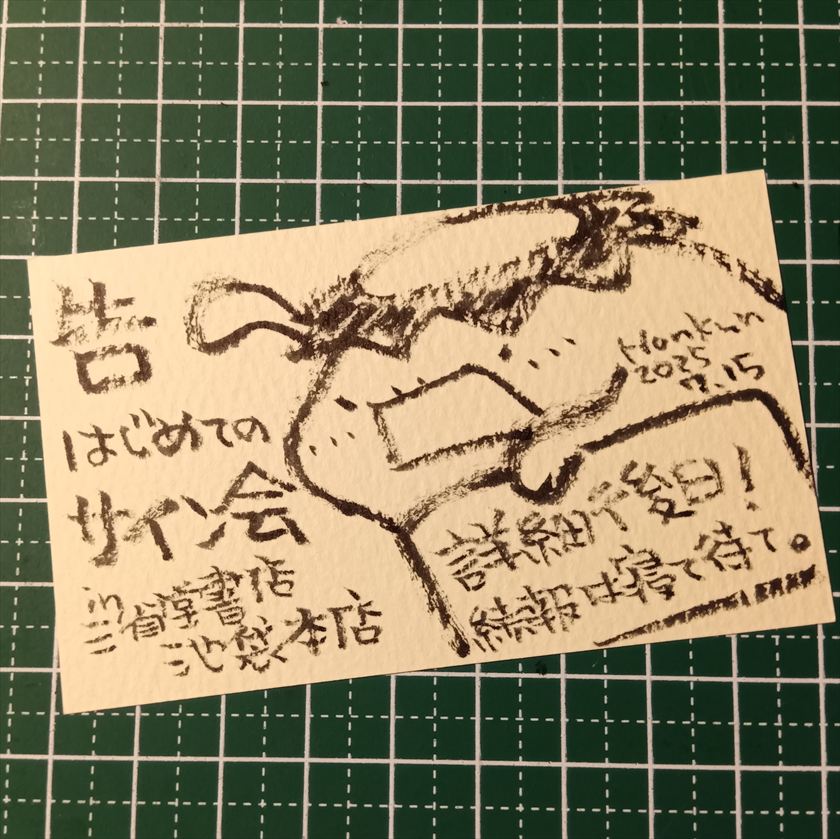 告
はじめての
サイン会
in
三省堂書店
池袋本店
Honkun
2025
7.15
詳細は後日!
続報は寝て待て。